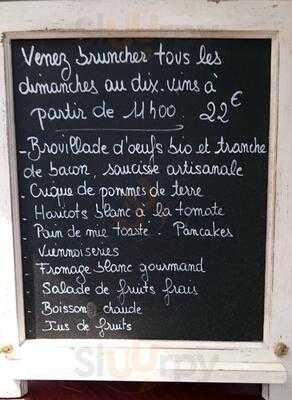 Venez bruncher tous les
dimanches au dix.vins à
partir de 11h00 22€
- Brouillade d'oeufs bio et tranche
de bacon, saucisse artisanale
- Crique de pommes de terre
- Haricots blanc à la tomate
- Pain de mie toasté - Pancakes
- Viennoiseries
- Fromage blanc gourmand
- Salade de fruits frais
- Boisson chaude
- Jus de fruits
Sluurpy